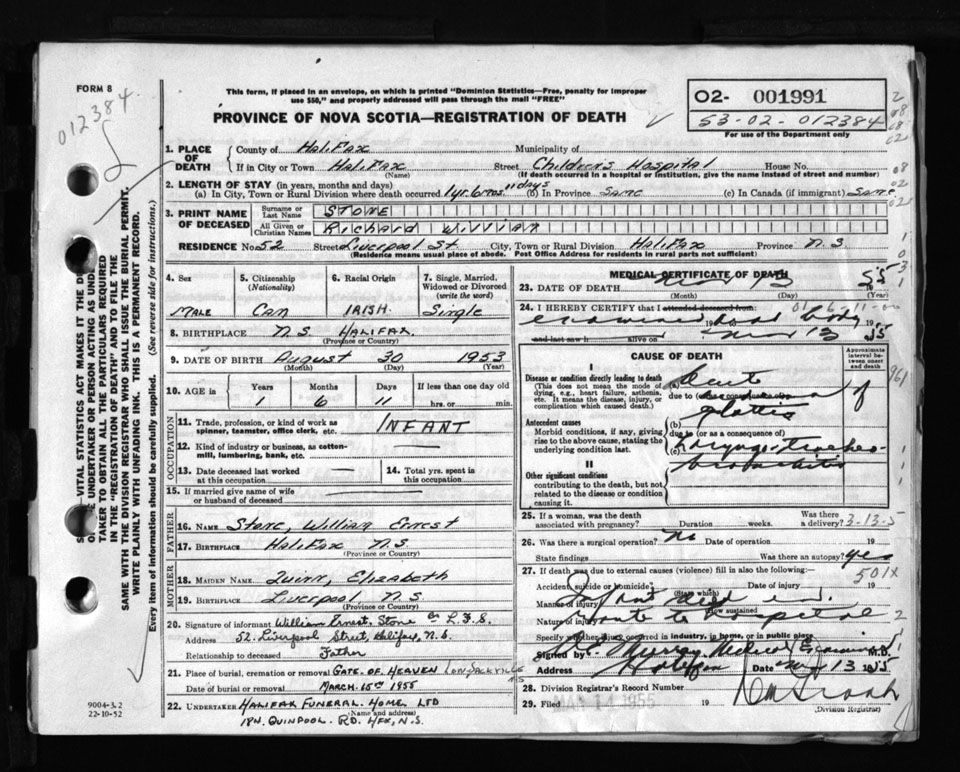 FORM 8
012384
This form, if placed in an envelope, on which is printed "Dominion Statistics—Free, penalty for improper
use $50," and properly addressed will pass through the mail "FREE"
PROVINCE OF NOVA SCOTIA—REGISTRATION OF DEATH
O2- 001991
53-02-012384
For use of the Department only
1. PLACE OF DEATH County of Halifax Municipality of
If in City or Town Halifax Street Children's Hospital House No.
(Name) (If death occurred in a hospital or institution, give the name instead of street and number)
2. LENGTH OF STAY (in years, months and days)
(a) In City, Town or Rural Division where death occurred 1 yr. 6 mos. 11 days (b) In Province Same (c) In Canada (if immigrant) Same
3. PRINT NAME OF DECEASED Surname or Last Name STONE
All Given or Christian Names Richard William
RESIDENCE No 52 Street Liverpool St City, Town or Rural Division Halifax Province N.S.
(Residence means usual place of abode. Post Office Address for residents in rural parts not sufficient)
4. Sex MALE
5. Citizenship (Nationality) Can
6. Racial Origin IRISH
7. Single, Married, Widowed or Divorced (write the word) Single
8. BIRTHPLACE N.S. HALIFAX
(Province or Country)
9. DATE OF BIRTH August 30 1953
(Month) (Day) (Year)
10. AGE in Years Months Days If less than one day old
1 6 11 hrs. or min.
OCCUPATION
11. Trade, profession, or kind of work as spinner, teamster, office clerk, etc. INFANT
12. Kind of industry or business, as cotton-mill, lumbering, bank, etc.
13. Date deceased last worked at this occupation
14. Total yrs. spent in this occupation
15. If married give name of wife or husband of deceased
FATHER
16. NAME Stone, William Ernest
17. BIRTHPLACE Halifax N.S.
(Province or Country)
MOTHER
18. MAIDEN NAME Quinn, Elizabeth
19. BIRTHPLACE Liverpool N.S.
(Province or Country)
20. Signature of informant William Ernest Stone
Address 52 Liverpool Street, Halifax, N.S.
Relationship to deceased Father
21. Place of burial, cremation or removal GATE OF HEAVEN Low Sackville N.S
Date of burial or removal MARCH 15th 1955
22. UNDERTAKER HALIFAX FUNERAL HOME LTD
(Name and address)
QUINPOOL RD. HFX, N.S.
MEDICAL CERTIFICATE OF DEATH
23. DATE OF DEATH 13 55
(Month) (Day) (Year)
24. I HEREBY CERTIFY that I attended deceased from
dead body 19
and last saw h alive on 13 55
CAUSE OF DEATH
Approximate interval between onset and death
I
Disease or condition directly leading to death
(This does not mean the mode of dying, e.g., heart failure, asthenia, etc. It means the disease, injury, or complication which caused death.)
(a) Acute
due to (or as a consequence of)
Antecedent causes
Morbid conditions, if any, giving rise to the above cause, stating the underlying condition last.
(b)
due to (or as a consequence of)
(c) Laryngo-tracheo-
bronchitis
II
Other significant conditions
contributing to the death, but not related to the disease or condition causing it.
25. If a woman, was the death associated with pregnancy? Duration weeks. Was there a delivery? 3-13-5
26. Was there a surgical operation? No Date of operation 19
State findings Was there an autopsy? yes
501x
27. If death was due to external causes (violence) fill in also the following:
Accident, suicide or homicide? Date of injury 19
(State which)
Manner of injury
(How sustained)
Nature of injury route to hospital
Specify whether injury occurred in industry, in home, or in public place
Signed by Murray Medical Examiner M.D.
Address Halifax Date 13 1955
28. Division Registrar's Record Number
29. Filed MAR 14 1955 19
(Division Registrar)
9004-3.2
22-10-52
SAME WITH THE DIVISION REGISTRAR WHO SHALL ISSUE THE BURIAL PERMIT.
WRITE PLAINLY WITH UNFADING INK. THIS IS A PERMANENT RECORD.
Every item of information should be carefully supplied. (See reverse side for instructions.)